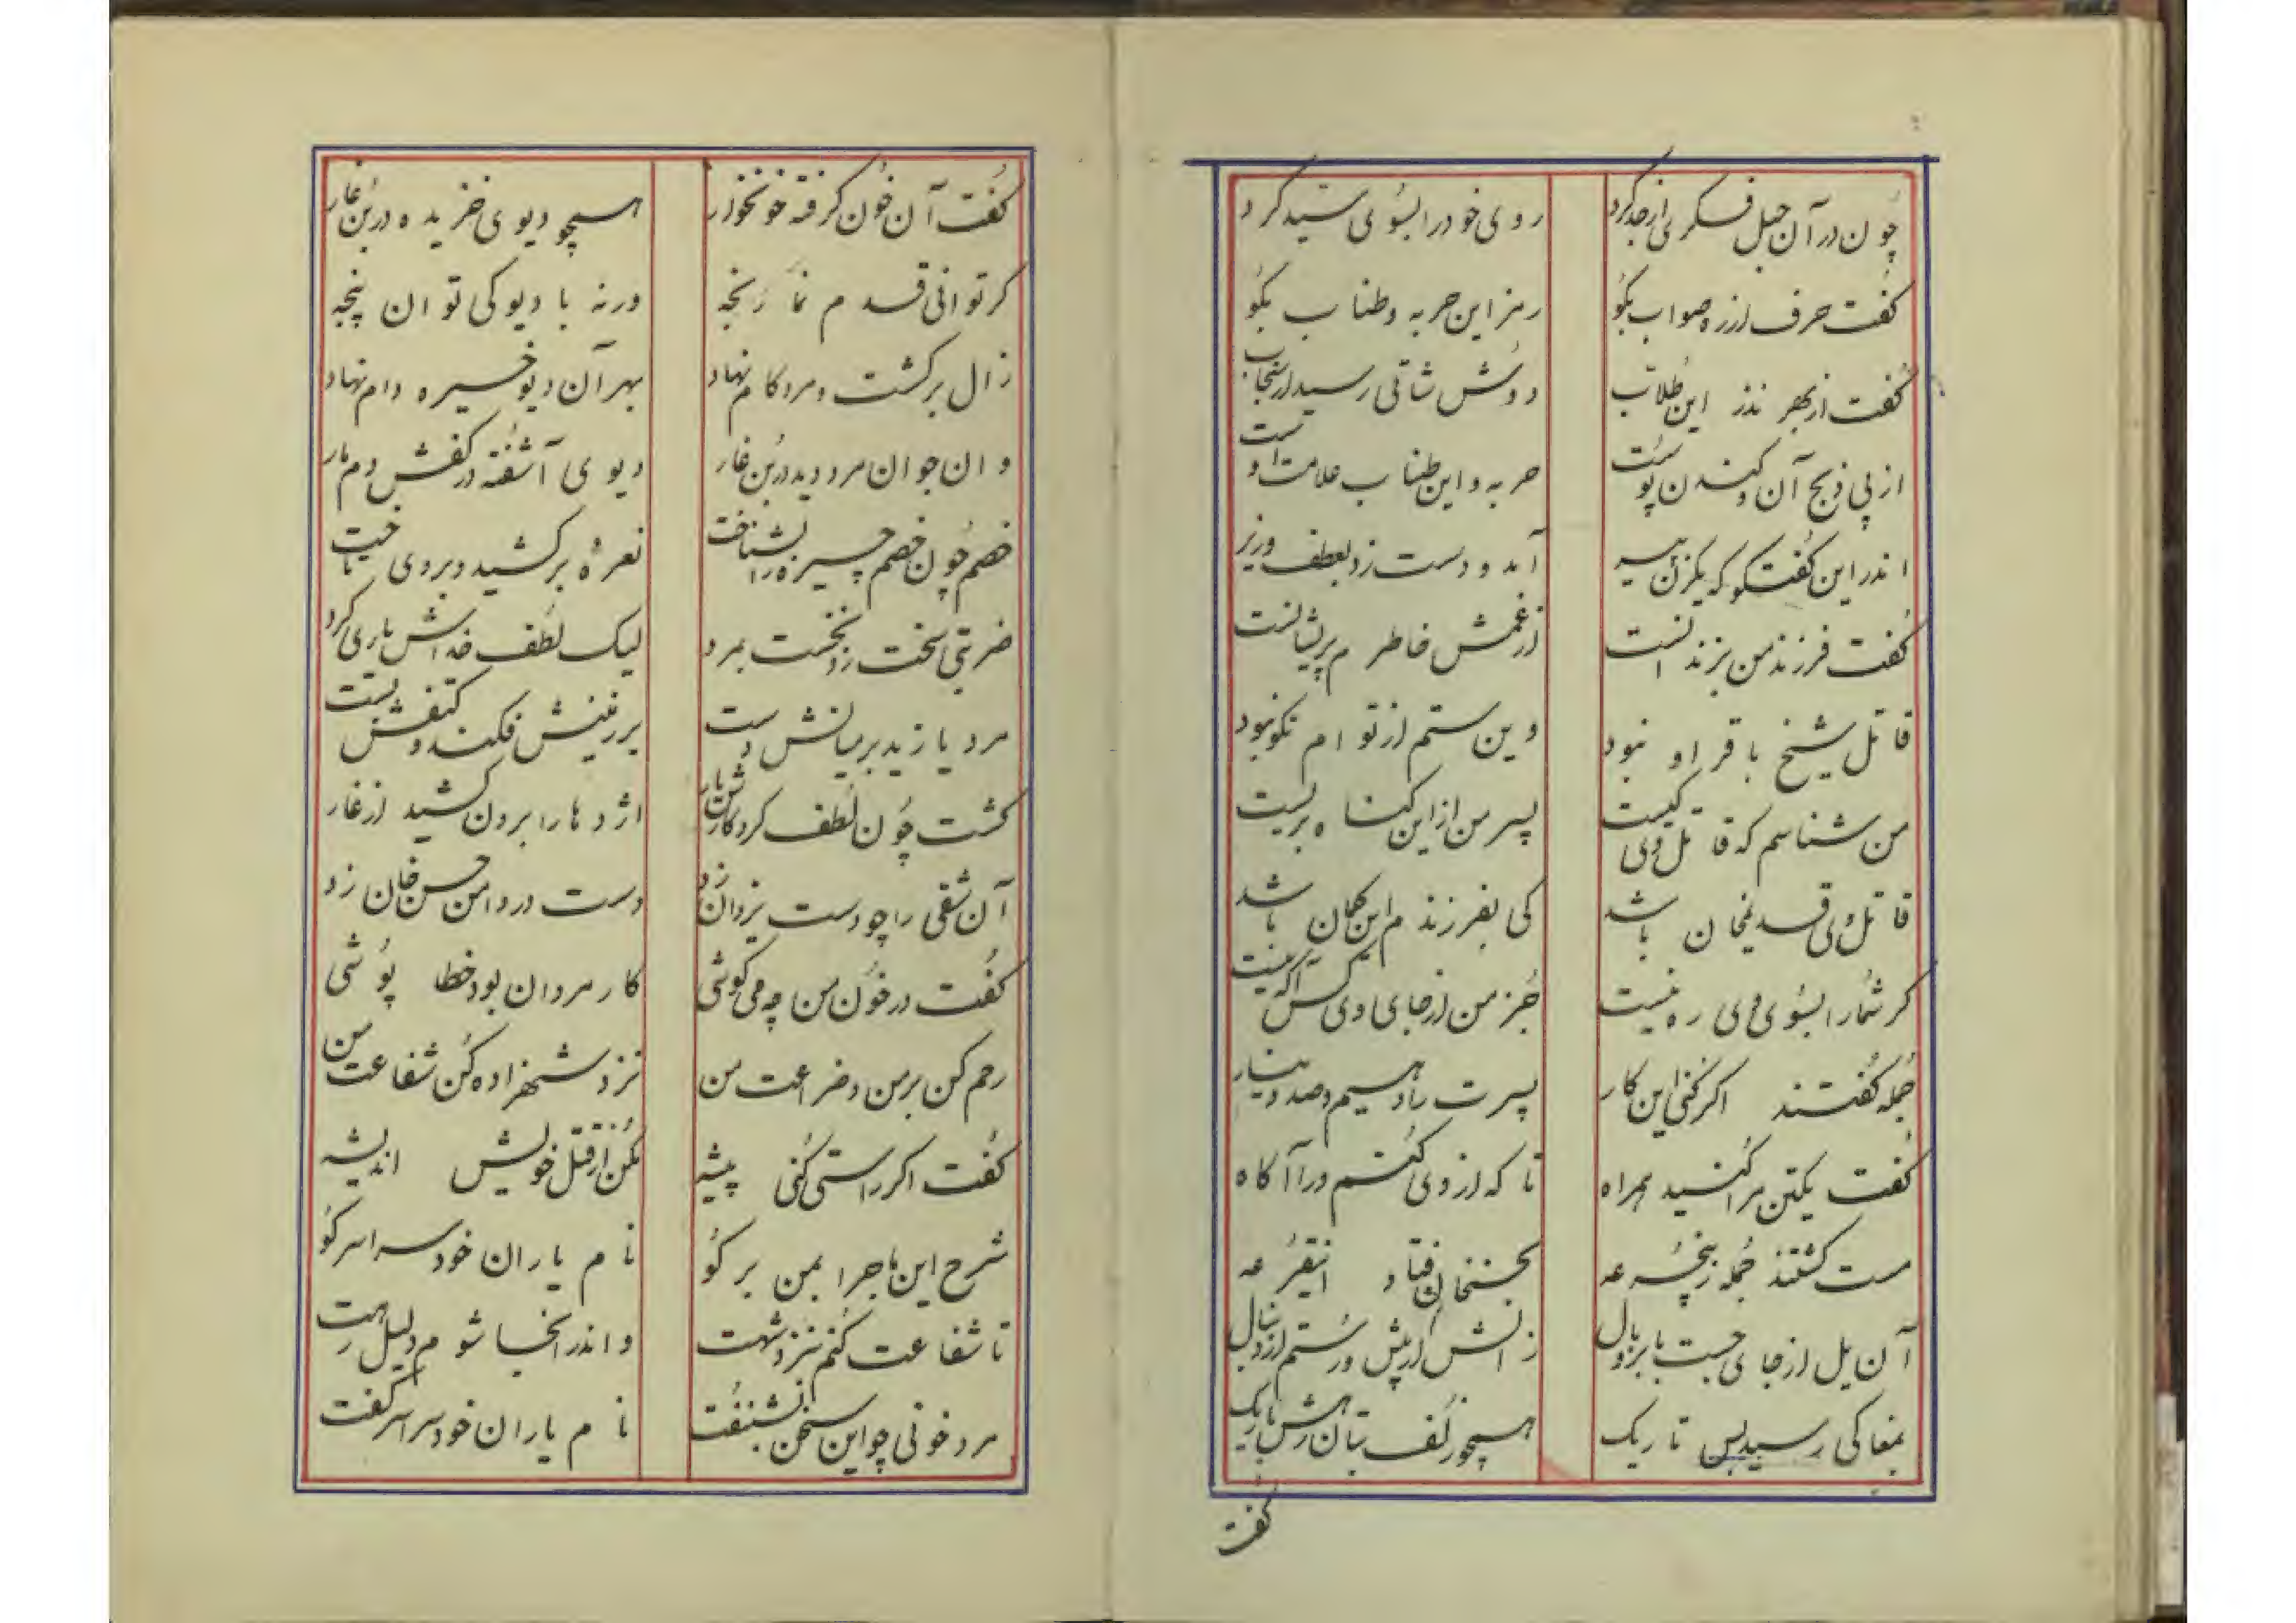 چون در آن حیل فکری از حد کرد
روی خود را بسوی سید کرد
کفت حرف از ره صواب بکو
رمز این حربه و طناب بکو
کفت از بهر نذر این طلاب
دوش شاتی رسید از سنجاب
از پی ذبح آن و کندن پوست
حربه و این طناب علامت اوست
اندر این کفتکو که یکزن پیر
آمد و دست زد بعطف وزیر
کفت فرزند من بزندانست
از غمش خاطرم پریشانست
قاتل شیخ باقر او نبود
وین ستم از تو ام نکو نبود
من شناسم که قاتل وی کیست
پسر من از این کناه بریست
قاتل وی قدیمخان باشد
کی بفرزندم این کمان باشد
کر شما را بسوی وی ره نیست
جز من از جای وی کس آکه نیست
جمله کفتند اکر کنی این کار
پسرت را دهیم و صد دینار
کفت یکتن مرا کنید همراه
تا که از وی کنم ورا آکاه
مست کشتند جمله ز پنجه عه
بحسنخان فتاد اینقرعه
آن یل از جای جست با بر و یال
زالش از پیش و رستم از دنبال
بمغاکی رسید بس تاریک
همچو زلف بتان رهش باریک
کفت
کفت آن خون کرفته خونخوار
همچو دیوی خزیده در بن غار
کر توانی قدم نما رنجه
ورنه با دیو کی توان پنجه
زال برکشت و مرد کام نهاد
بهر آن دیو خیره دام نهاد
وان جوان مرد دید در بن غار
دیوی آشفته در کفش دم مار
خصم چون خصم چیره را بشناخت
نعرهٔ برکشید و بروی تاخت
ضربتی سخت زد نخست بمرد
لیک لطف خداش یاری کرد
مرد یازید بر میانش دست
بر زمینش فکند و کتفش بست
کشت چون لطف کردکارش یار
اژدها را برون کشید از غار
آن شقی را چو دست یزدان زد
دست در دامن حسن خان زد
کفت در خون من چه می کوشی
کار مردان بود خطا پوشی
رحم کن بر من و ضراعت من
نزد شهزاده کن شفاعت من
کفت اکر راستی کنی پیشه
مکن از قتل خویش اندیشه
شرح این ماجرا بمن بر کو
نام یاران خود سراسر کو
تا شفاعت کنم نزد شهت
و اندر آنجا شوم دلیل رهت
مرد خونی چو این سخن بشنفت
نام یاران خود سراسر کفت